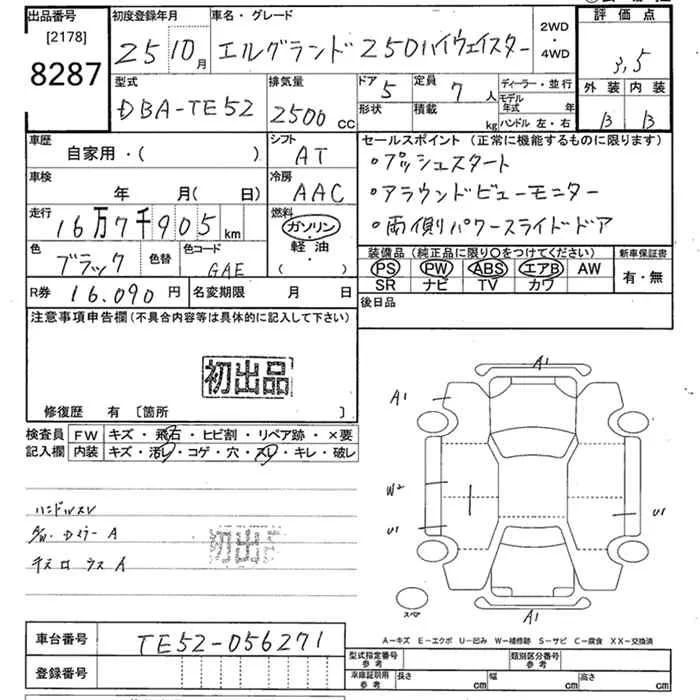 出品番号
[2178]
8287
初度登録年月
25 10月
車名・グレード
エルグランド 250ハイウェイスター
2WD
・
4WD
評価点
3,5
型式
DBA-TE52
排気量
2500 cc
ドア 5
形状
定員 7 人
積載 kg
ディーラー・並行
モデル年式 年
ハンドル 左・右
外装 内装
B B
車歴
自家用・( )
シフト
AT
セールスポイント(正常に機能するものに限ります)
・プッシュスタート
・アラウンドビューモニター
・両側パワースライドドア
車検
年 月(日)
冷房
AAC
走行
16万7千905 km
燃料
ガソリン・
軽油・
( )
色
ブラック
色替
色コード
GAE
装備品(純正品に限り○をつけてください)
PS PW ABS エアB AW
SR ナビ TV カワ
新車保証書
有・無
R券 16.090円
名変期限 月 日
後日品
注意事項申告欄(不具合内容等は具体的に記入して下さい)
初出品
修復歴 有 [箇所 ]
検査員
記入欄
FW キズ・飛石・ヒビ割・リペア跡・×要
内装 キズ・汚レ・コゲ・穴・スレ・キレ・破レ
ハンドルスレ
初出
A1
A1
W2
U1
U1
スペア
A1
A-キズ E-エクボ U-凹み W-補修跡 S-サビ C-腐食 XX-交換済
車台番号
TE52-056271
登録番号
型式指定番号
参考
類別区分番号
参考
車庫証明用
参考
長さ cm
幅 cm
高さ cm